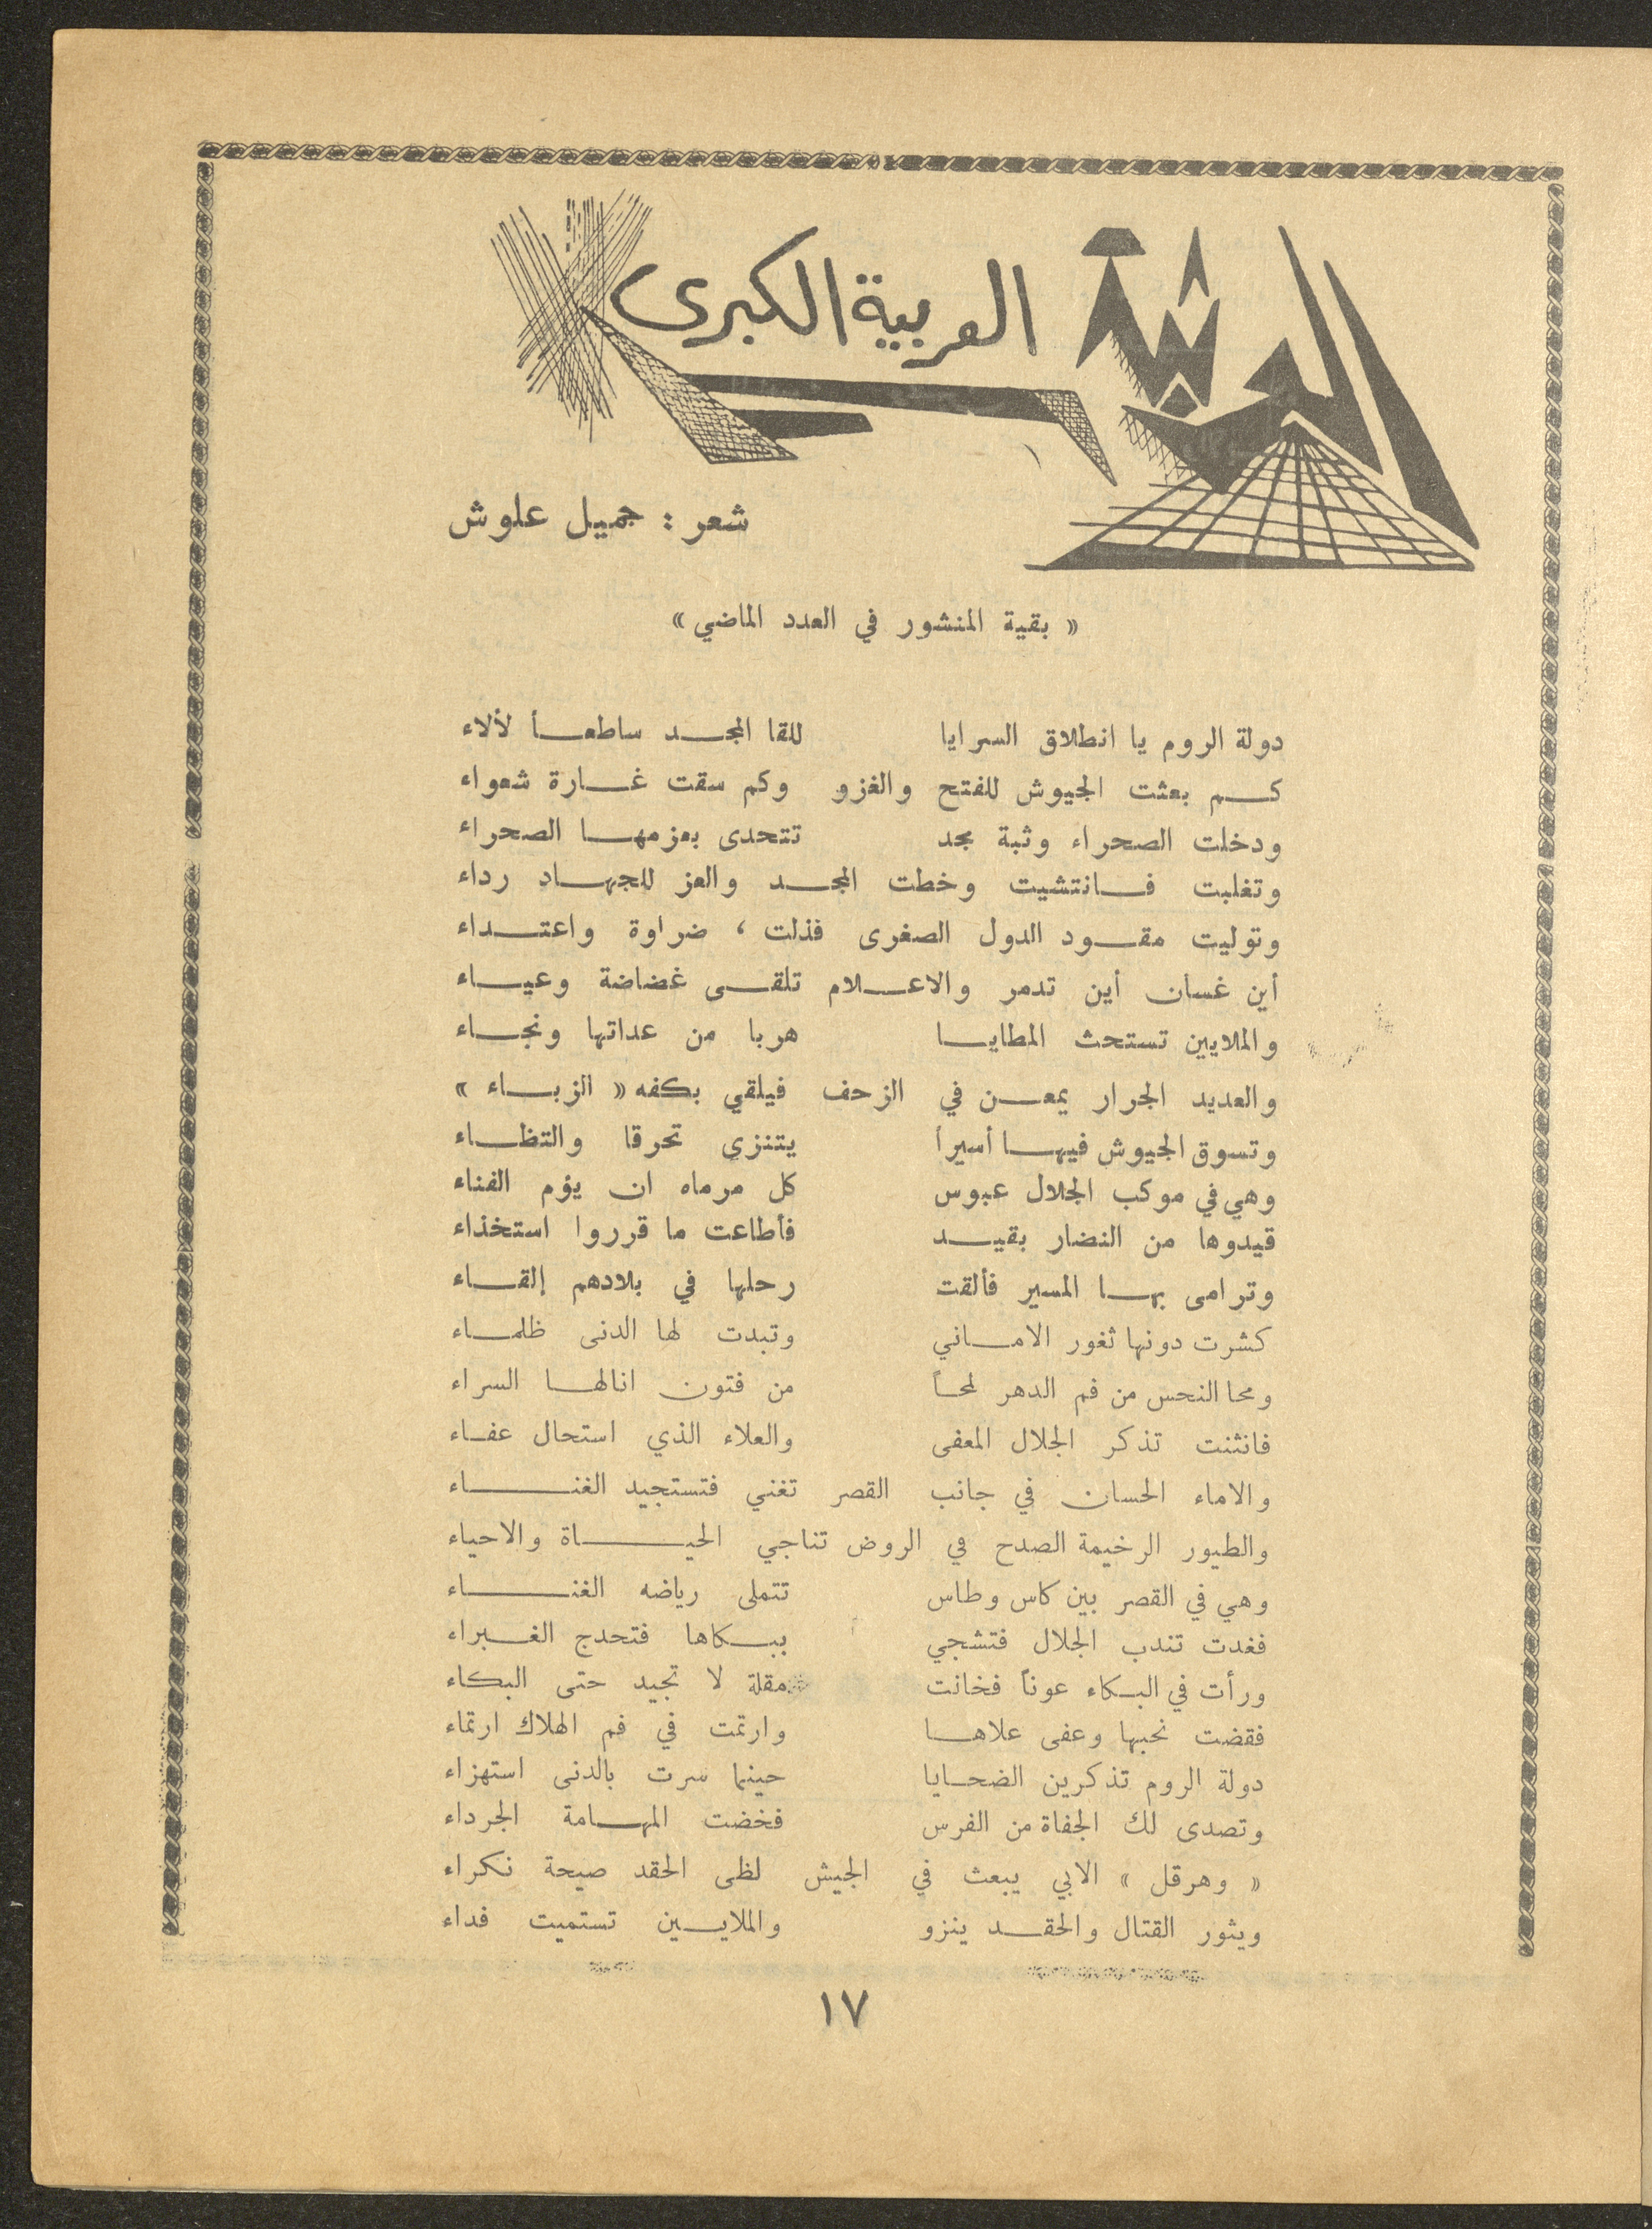 العربية الكبرى
شعر : جميل علوش
« بقية المنشور في العدد الماضي »
دولة الروم يا انطلاق السرايا للقا المجد ساطعاً لألاء
كم بعثت الجيوش للفتح والغزو وكم سقت غارة شعواء
ودخلت الصحراء وثبة مجد تتحدى بعزمها الصحراء
وتغلبت فانتشيت وخطت المجد والعز للجهاد رداء
وتوليت مقود الدول الصغرى فذلت ، ضراوة واعتداء
أين غسان أين تدمر والاعلام تلقى غضاضة وعياء
والملايين تستحث المطايا هربا من عداتها ونجاء
والعديد الجرار يمعن في الزحف فيلقي بكفه « الزباء »
وتسوق الجيوش فيها أسيراً يتنزى تحرقا والتظاء
وهي في موكب الجلال عبوس كل مرماه ان يؤم الفناء
قيدوها من النضار بقيد فأطاعت ما قرروا استخذاء
وترامى بها المسير فألقت رحلها في بلادهم إلقاء
كشرت دونها ثغور الاماني وتبدت لها الدنى ظلماء
ومحا النحس من فم الدهر لمحاً من فتون انالها السراء
فانثنت تذكر الجلال المعفى والعلاء الذي استحال عفاء
والاماء الحسان في جانب القصر تغني فتستجيد الغناء
والطيور الرخيمة الصدح في الروض تناجي الحياة والاحياء
وهي في القصر بين كاس وطاس تتملى رياضه الغناء
فغدت تندب الجلال فتشجي ببكاها فتحدج الغبراء
ورأت في البكاء عوناً فخانت مقلة لا تجيد حتى البكاء
فقضت نحبها وعفى علاها وارتمت في فم الهلاك ارتماء
دولة الروم تذكرين الضحايا حينما سرت بالدنى استهزاء
وتصدى لك الجفاة من الفرس فخضت المهامة الجرداء
« وهرقل » الابي يبعث في الجيش لظى الحقد صيحة نكراء
ويثور القتال والحقد ينزو والملايين تستميت فداء
١٧